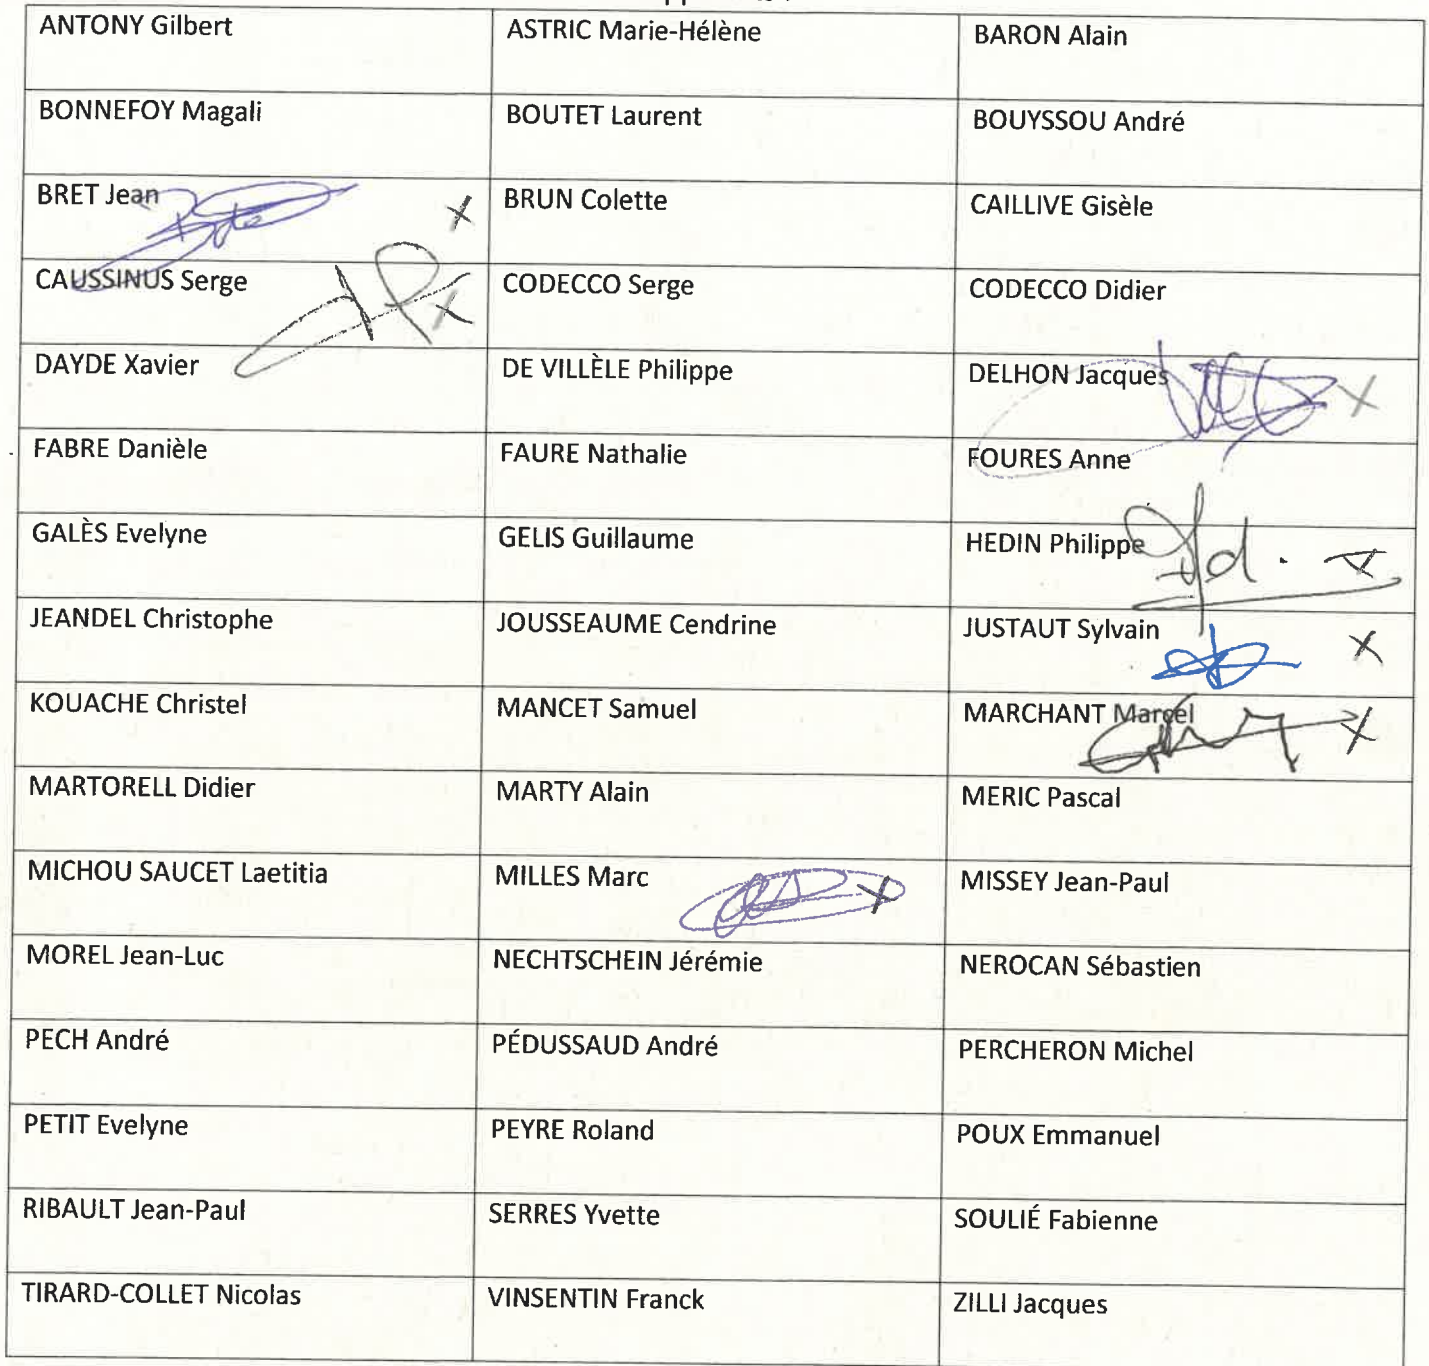 ANTONY Gilbert
ASTRIC Marie-Hélène
BARON Alain
BONNEFOY Magali
BOUTET Laurent
BOUYSSOU André
BRET Jean
X
BRUN Colette
CAILLIVE Gisèle
CAUSSINUS Serge
X
CODECCO Serge
CODECCO Didier
DAYDE Xavier
DE VILLÈLE Philippe
DELHON Jacques
X
FABRE Danièle
FAURE Nathalie
FOURES Anne
GALÈS Evelyne
GELIS Guillaume
HEDIN Philippe
X
JEANDEL Christophe
JOUSSEAUME Cendrine
JUSTAUT Sylvain
X
KOUACHE Christel
MANCET Samuel
MARCHANT Marcel
X
MARTORELL Didier
MARTY Alain
MERIC Pascal
MICHOU SAUCET Laetitia
MILLES Marc
X
MISSEY Jean-Paul
MOREL Jean-Luc
NECHTSCHEIN Jérémie
NEROCAN Sébastien
PECH André
PÉDUSSAUD André
PERCHERON Michel
PETIT Evelyne
PEYRE Roland
POUX Emmanuel
RIBAULT Jean-Paul
SERRES Yvette
SOULIÉ Fabienne
TIRARD-COLLET Nicolas
VINSENTIN Franck
ZILLI Jacques